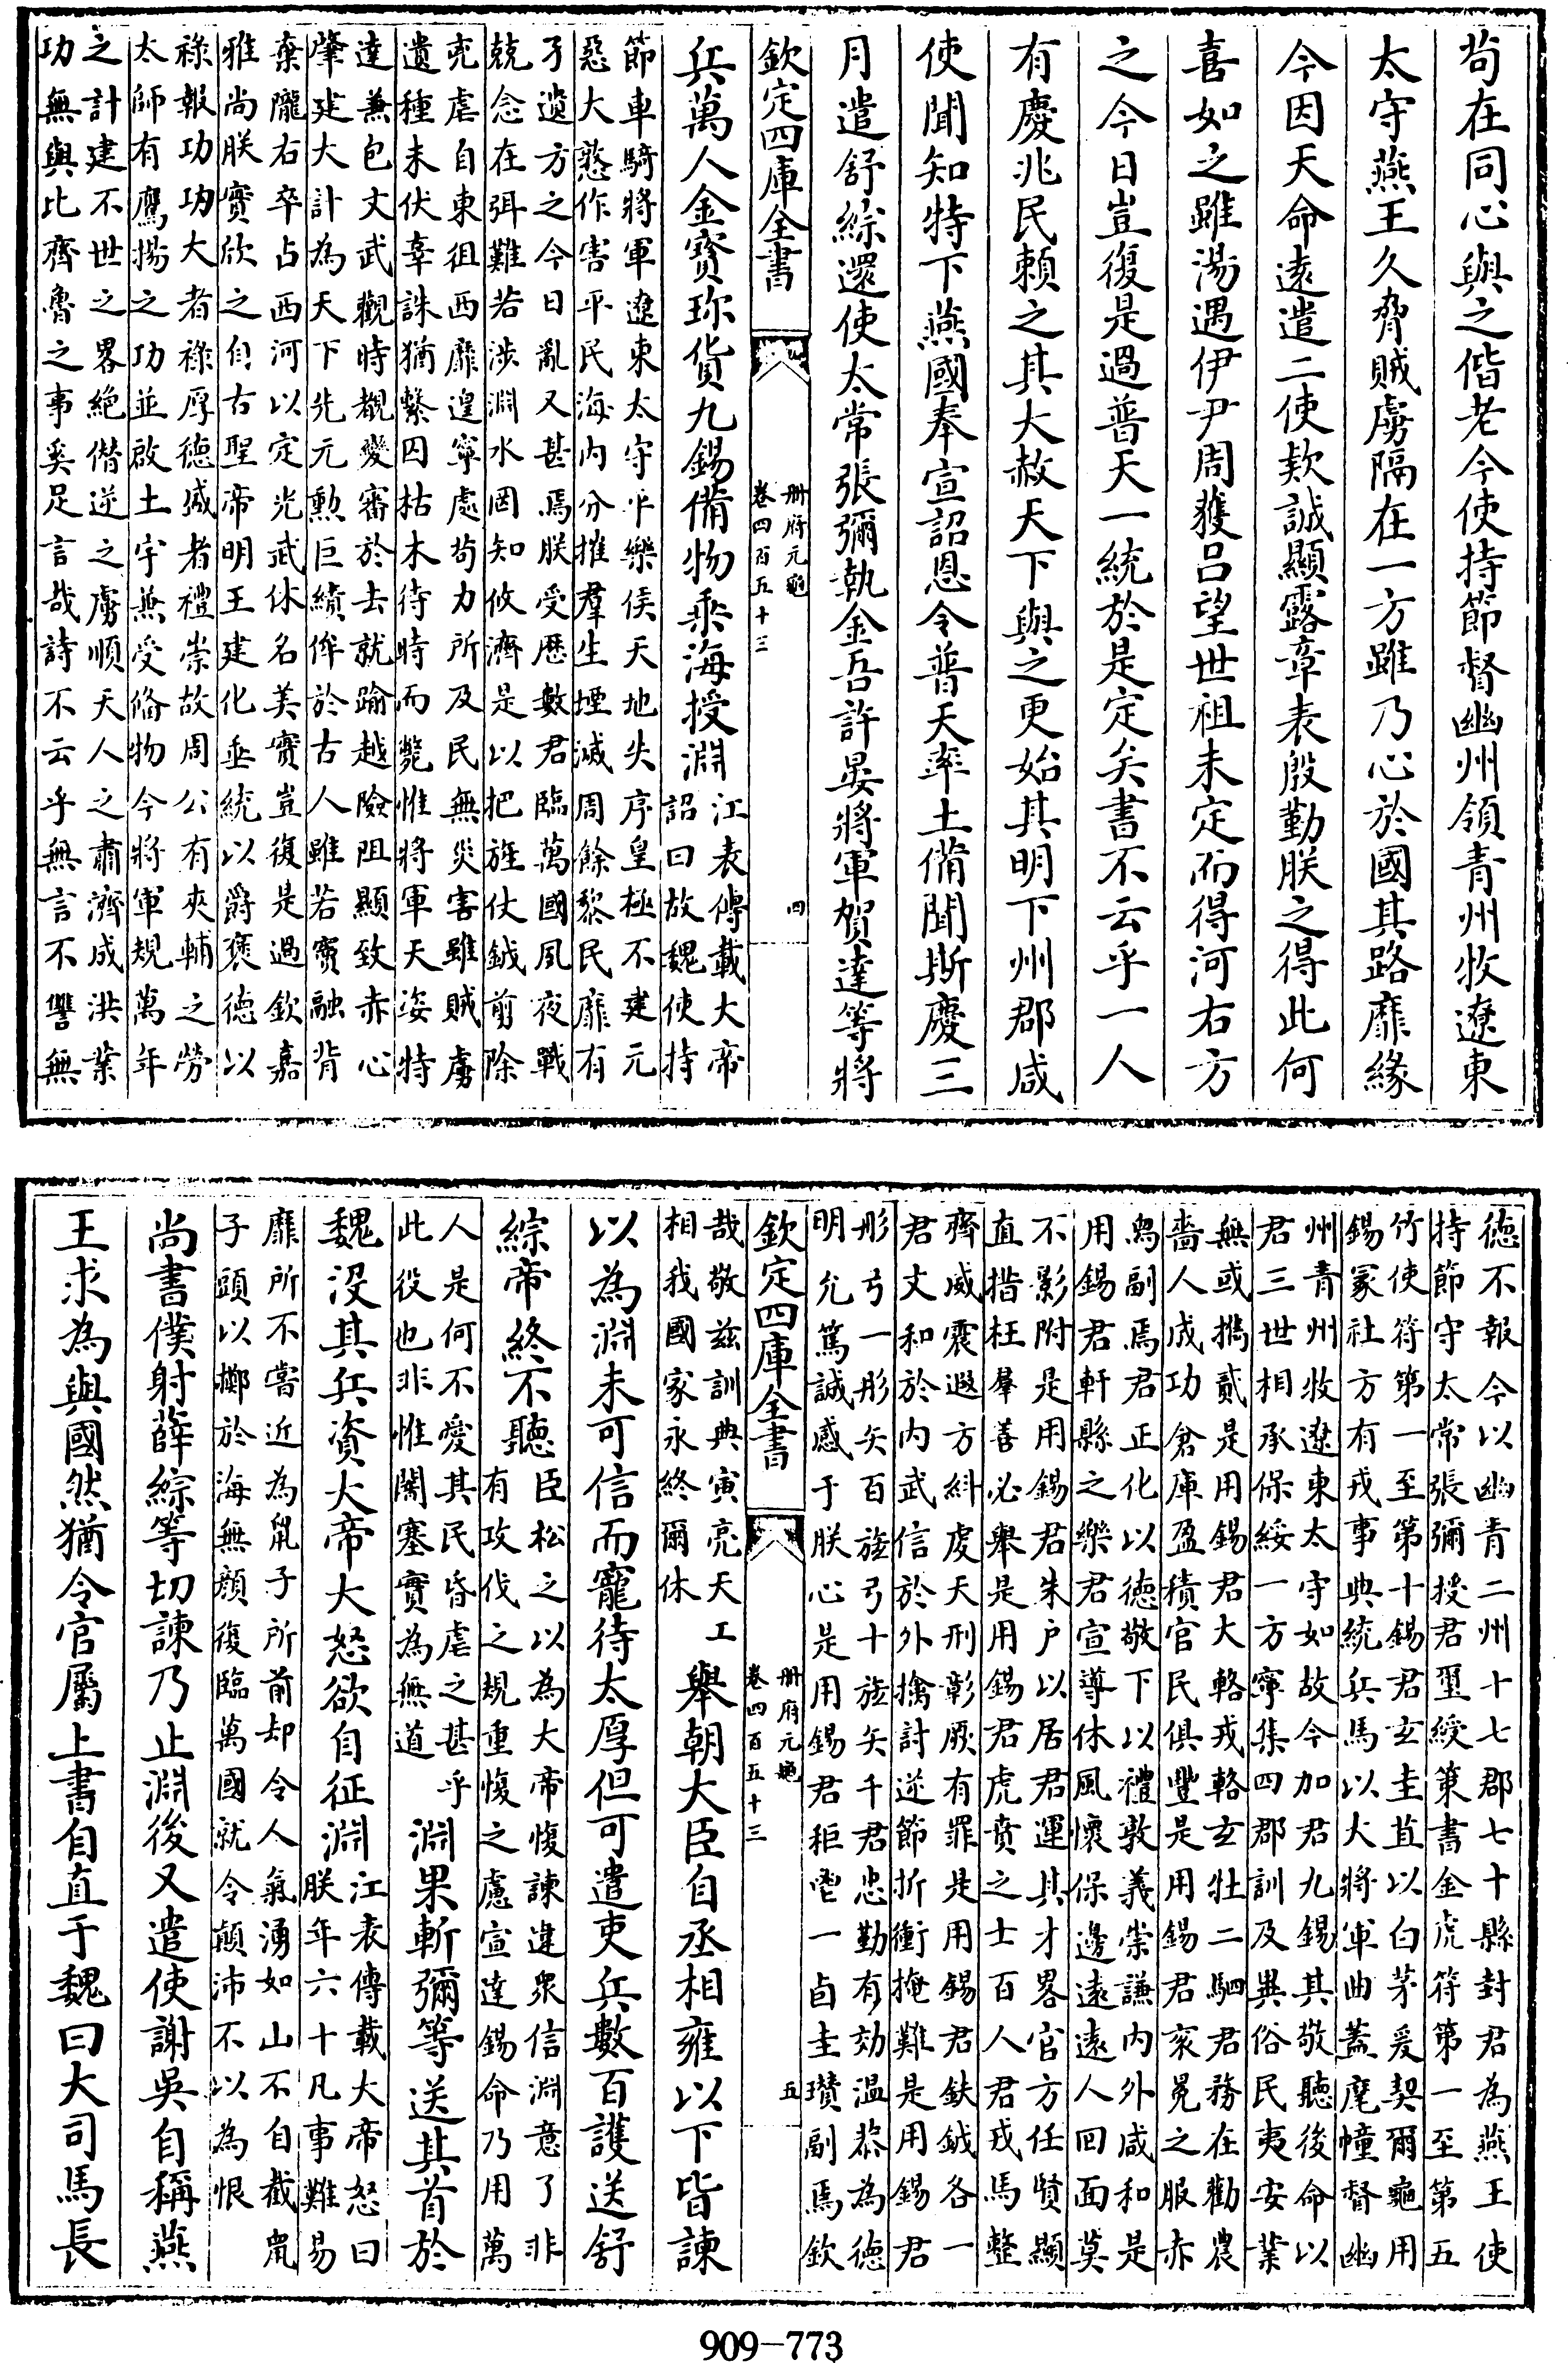 苟在同心與之偕老今使持節督幽州領青州牧遼東
太守燕王久脅賊虜隔在一方雖乃心於國其路靡緣
今因天命遠遣二使款誠顯露章表殷勤朕之得此何
喜如之雖湯遇伊尹周獲呂望世祖未定而得河右方
之今日豈復是過普天一統於是定矣書不云乎一人
有慶兆民賴之其大赦天下與之更始其明下州郡咸
使聞知特下燕國奉宣詔恩令普天率土備聞斯慶三
月遣舒綜還使太常張彌執金吾許晏將軍賀達等將
欽定四庫全書
冊府元龜
卷四百五十三
四
兵萬人金寶珍貨九錫備物乘海授淵
江表傳載大帝
詔曰故魏使持
節車騎將軍遼東太守平樂侯天地失序皇極不建元
惡大憝作害平民海内分摧羣生堙滅周餘黎民靡有
孑遺方之今日亂又甚焉朕受歷數君臨萬國夙夜戰
兢念在弭難若涉淵水罔知攸濟是以把旄仗鉞前除
兇虐自東徂西靡遑寧處苟力所及民無災害雖賊虜
遺種未伏辜誅猶繫囚枯木待時而斃惟將軍天姿特
達兼包文武觀時覩變審於去就踰越險阻顯致赤心
肇建大計為天下先元勲巨績侔於古人雖若竇融背
棄隴右卒占西河以定光武休名美實豈復是過欽嘉
雅尚朕實欣之自古聖帝明王建化垂統以爵褒德以
祿報功功大者祿厚德盛者禮崇故周公有夾輔之勞
太師有鷹揚之功並啟土宇兼受備物今將軍規萬年
之計建不世之畧絶僭逆之虜順天人之肅濟成洪業
功無與比齊魯之事奚足言哉詩不云乎無言不讐無
德不報今以幽青二州十七郡七十縣封君為燕王使
持節守太常張彌授君璽綬策書金虎符第一至第五
竹使符第一至第十錫君玄圭苴以白茅爰契爾龜用
錫冢社方有戎事典統兵馬以大將軍曲蓋麾幢督幽
州青州牧遼東太守如故今加君九錫其敬聽後命以
君三世相承保綏一方寧集四郡訓及異俗民夷安業
無或攜貳是用錫君大輅戎輅玄牡二駟君務在勸農
嗇人成功倉庫盈積官民俱豐是用錫君衮冕之服赤
舄副焉君正化以德敬下以禮敦義崇謙内外咸和是
用錫君軒縣之樂君宣導休風懷保邊遠遠人回面莫
不影附是用錫君朱户以居君運其才畧官方任賢顯
直措枉羣善必舉是用錫君虎賁之士百人君戎馬整
齊威震遐方糾虔天刑彰厥有罪是用錫君鈇鉞各一
君文和於内武信於外擒討逆節折衝掩難是用錫君
彤弓一彤矢百玈弓十玈矢千君忠勤有効温恭為德
明允篤誠感于朕心是用錫君秬鬯一卣圭瓚副焉欽
欽定四庫全書
冊府元龜
卷四百五十三
五
哉敬兹訓典寅亮天工
相我國家永終爾休
舉朝大臣自丞相雍以下皆諫
以為淵未可信而寵待太厚但可遣吏兵數百護送舒
綜帝終不聽
臣松之以為大帝愎諫違衆信淵意了非
有攻伐之規重愎之慮宣達錫命乃用萬
人是何不愛其民昏虐之甚乎
此役也非惟闇塞實為無道
淵果斬彌等送其首於
魏没其兵資大帝大怒欲自征淵
江表傳載大帝怒曰
朕年六十凡事難易
靡所不嘗近為鼠子所前却令人氣湧如山不自截鼠
子頭以擲於海無顔復臨萬國就令顛沛不以為恨
尚書僕射薛綜等切諫乃止淵後又遣使謝吳自稱燕
王求為與國然猶令官屬上書自直于魏曰大司馬長
909-773